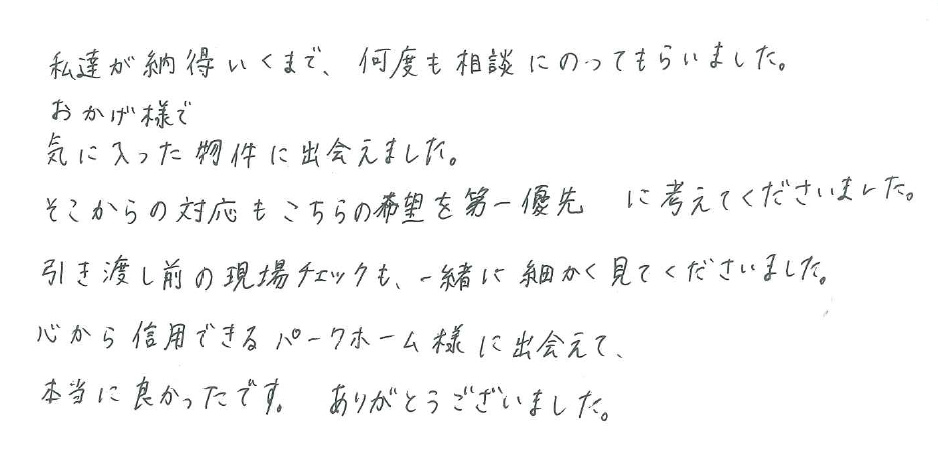 私達が納得いくまで、何度も相談にのってもらいました。
おかげ様で
気に入った物件に出会えました。
そこからの対応もこちらの希望を第一優先 に考えてくださいました。
引き渡し前の現場チェックも、一緒に細かく見てくださいました。
心から信用できるパークホーム様に出会えて、
本当に良かったです。 ありがとうございました。